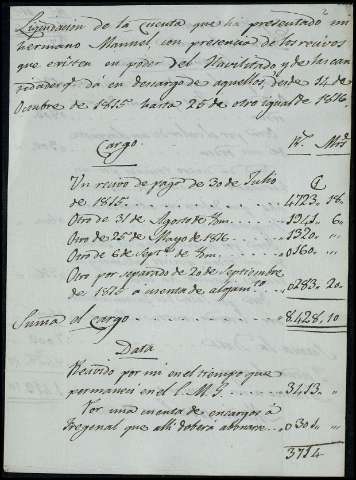 Liquidacion de la cuenta que ha presentado mi
hermano Manuel, con presencia de los recivos
que existen en poder del Havilitado y de las can
tidades q.e dá en descargo de aquellos, desde 14 de
Octubre de 1815 hasta 25 de otro igual de 1816.
Cargo. R.s Mrs
Un recivo de pag.s de 30 de Julio
de 1815 4723,, 18,,
Otro de 31 de Agosto de 1941,, 6,,
Otro de 25 de Mayo de 1816 1320,, ,,
Otro de 6 de Sept.e de 0160,, ,,
Otro por separado de 20 de Septiembre
de 1815 á cuenta de alojam.to 0283,, 20,,
Suma el cargo 8.428,,10
Data
Recivido por mi en el tiempo que
permaneci en el 3413,, ,,
Por una cuenta de encargos á
Fregenal que alli deberá abonarse 0301,, ,,
3714